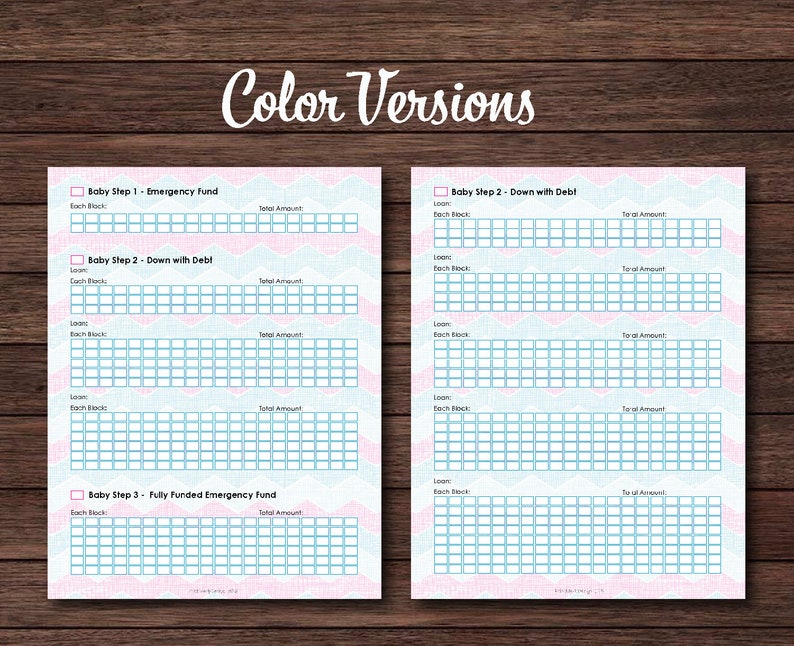 Color Versions
Baby Step 1 - Emergency Fund
Each Block:
Total Amount:
Baby Step 2 - Down with Debt
Loan:
Each Block:
Total Amount:
Loan:
Each Block:
Total Amount:
Loan:
Each Block:
Total Amount:
Baby Step 3 - Fully Funded Emergency Fund
Each Block:
Total Amount:
Baby Step 2 - Down with Debt
Loan:
Each Block:
Total Amount:
Loan:
Each Block:
Total Amount:
Loan:
Each Block:
Total Amount:
Loan:
Each Block:
Total Amount:
Loan:
Each Block:
Total Amount: